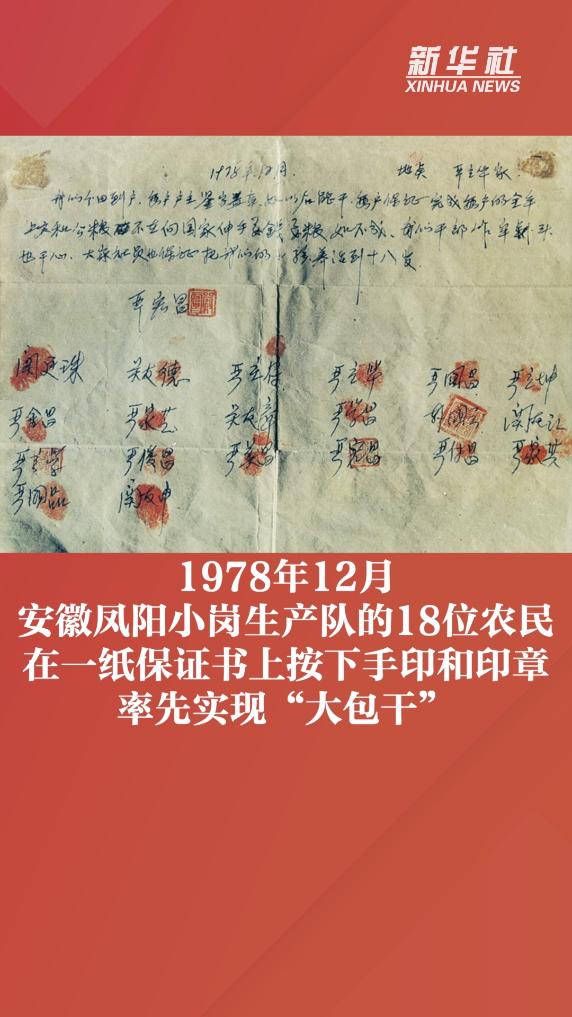 新华社
XINHUA NEWS
1978年12月. 地点 严立华家
我们分田到户,每户户主签字盖章,如以后能干,每户保证完成每户的全年
上交和公粮 不在向国家伸手要钱要粮 如不成,我们干部作牢 头
也干心,大家社员也保证把我们的小孩养活到十八岁.
严宏昌
关廷珠 关友德 严立符 严立华 严国昌 严立坤
严金昌 严家芝 关友章 严学昌 韩国云 关友江
严立学 严俊昌 严美昌 严宏昌 严付昌 严家其
严国品 关友申
1978年12月
安徽凤阳小岗生产队的18位农民
在一纸保证书上按下手印和印章
率先实现“大包干”